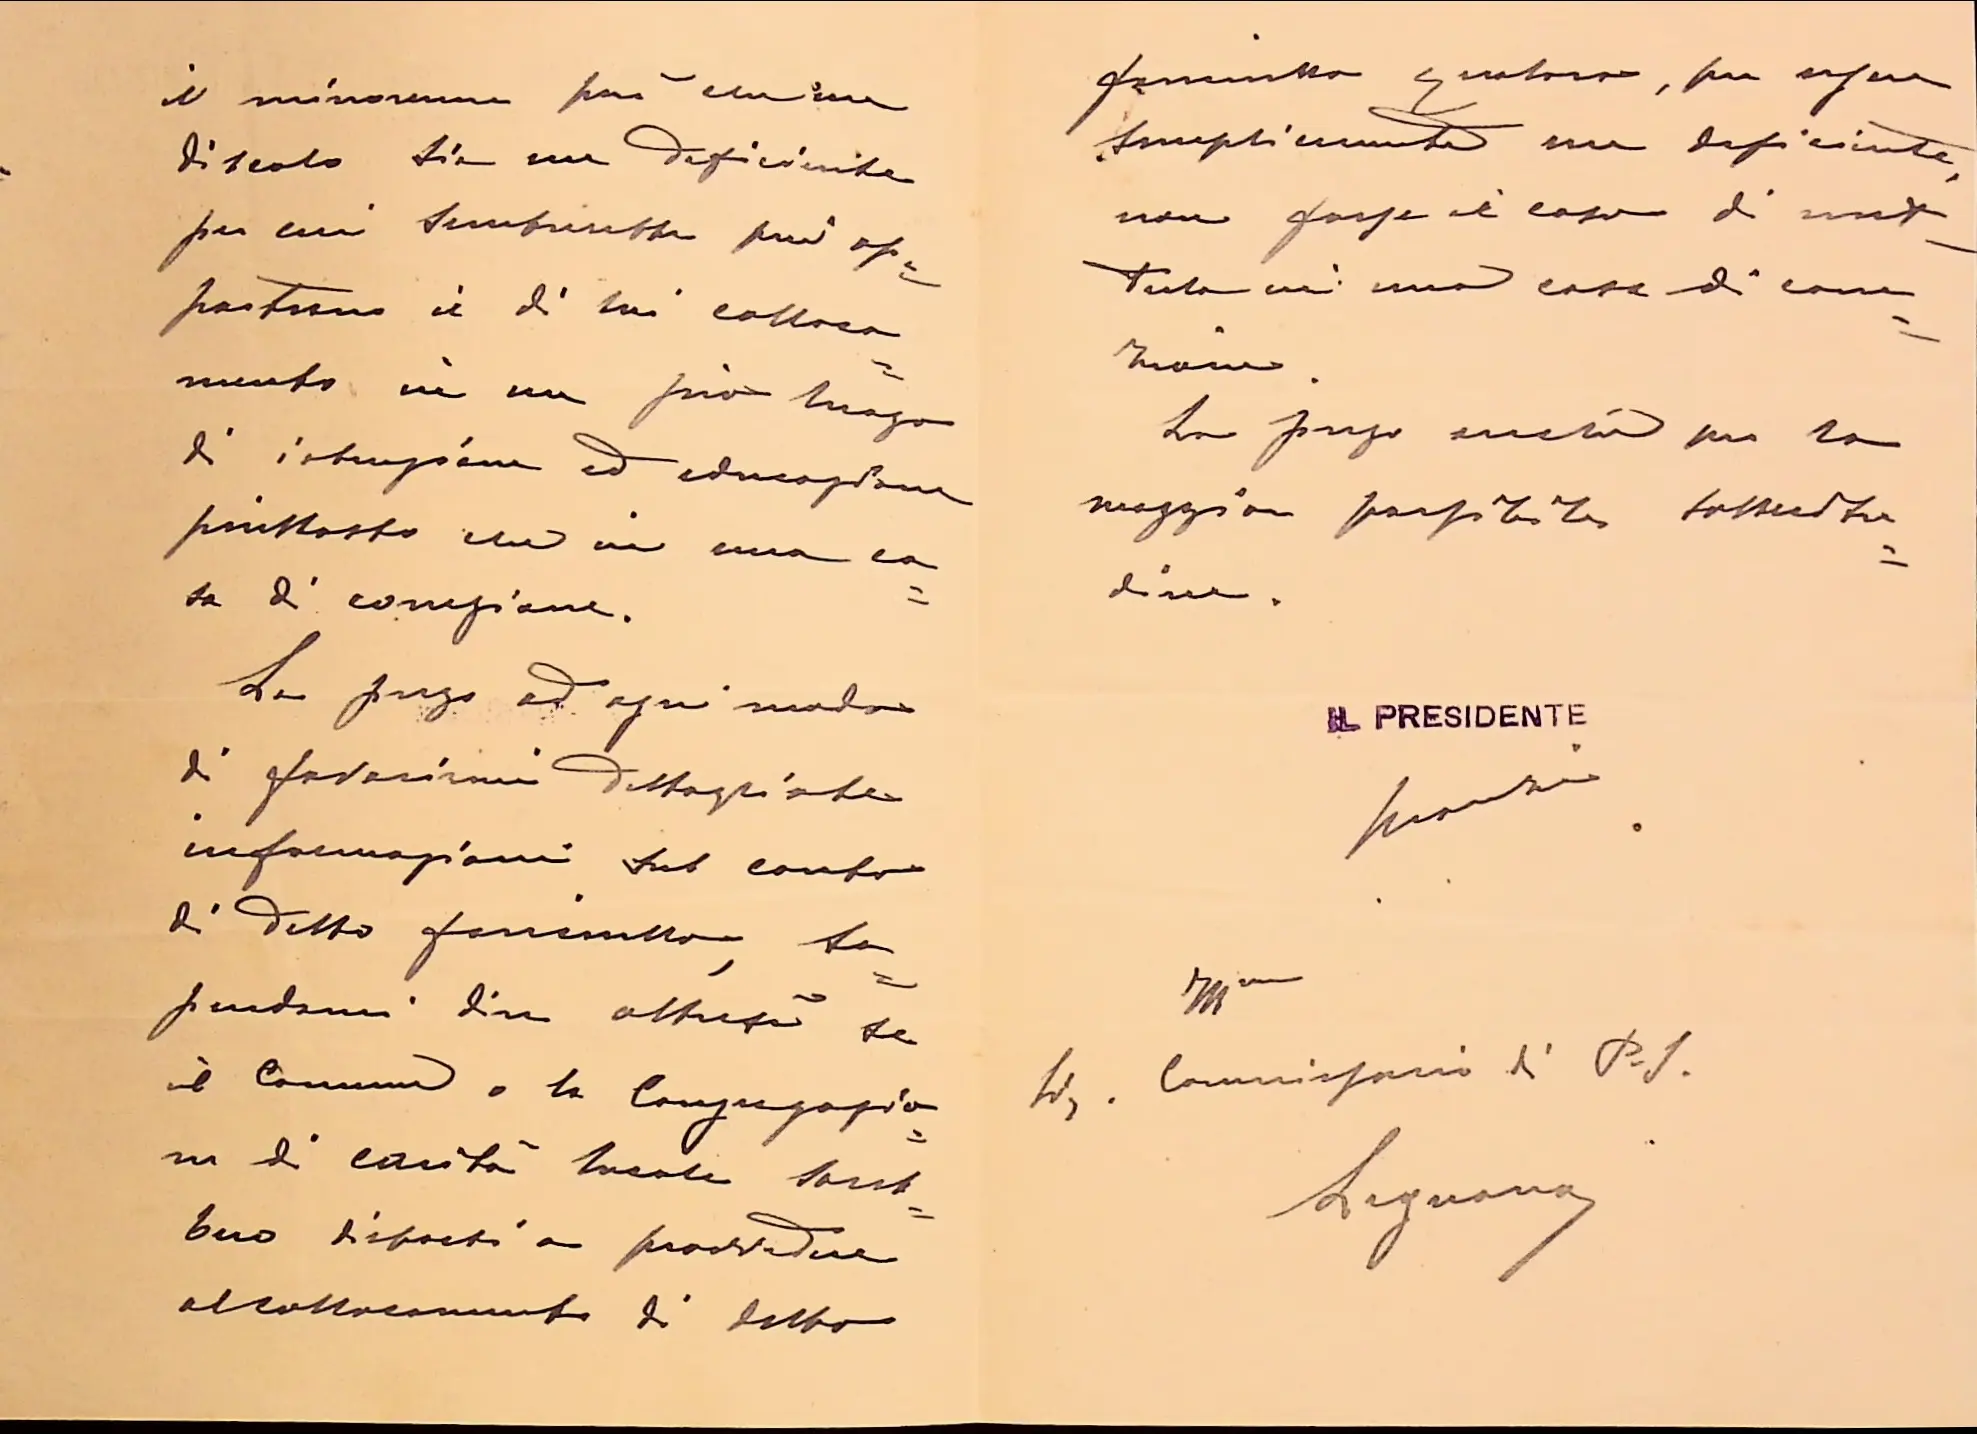 il minorenne più che un
discolo sia un deficiente
per cui sembrerebbe più op=
portuno il di lui colloca=
mento in un pio luogo
di istruzione ed educazione
piuttosto che in una ca=
sa di correzione.
La prego ad ogni modo
di favorirmi dettagliate
informazioni sul conto
di detto fanciullo, sa=
pendomi dire altresì se
il Comune o la Congregazio=
ne di carità locale sareb=
bero disposti a provvedere
al collocamento di detto
fanciullo qualora, per essere
semplicemente un deficiente,
non fosse il caso di met=
terlo in una casa di corre=
zione.
La prego anche per la
maggior possibile sollecitu=
dine.
IL PRESIDENTE
Ill.mo
Sig. Commissario di P. S.
Legnano